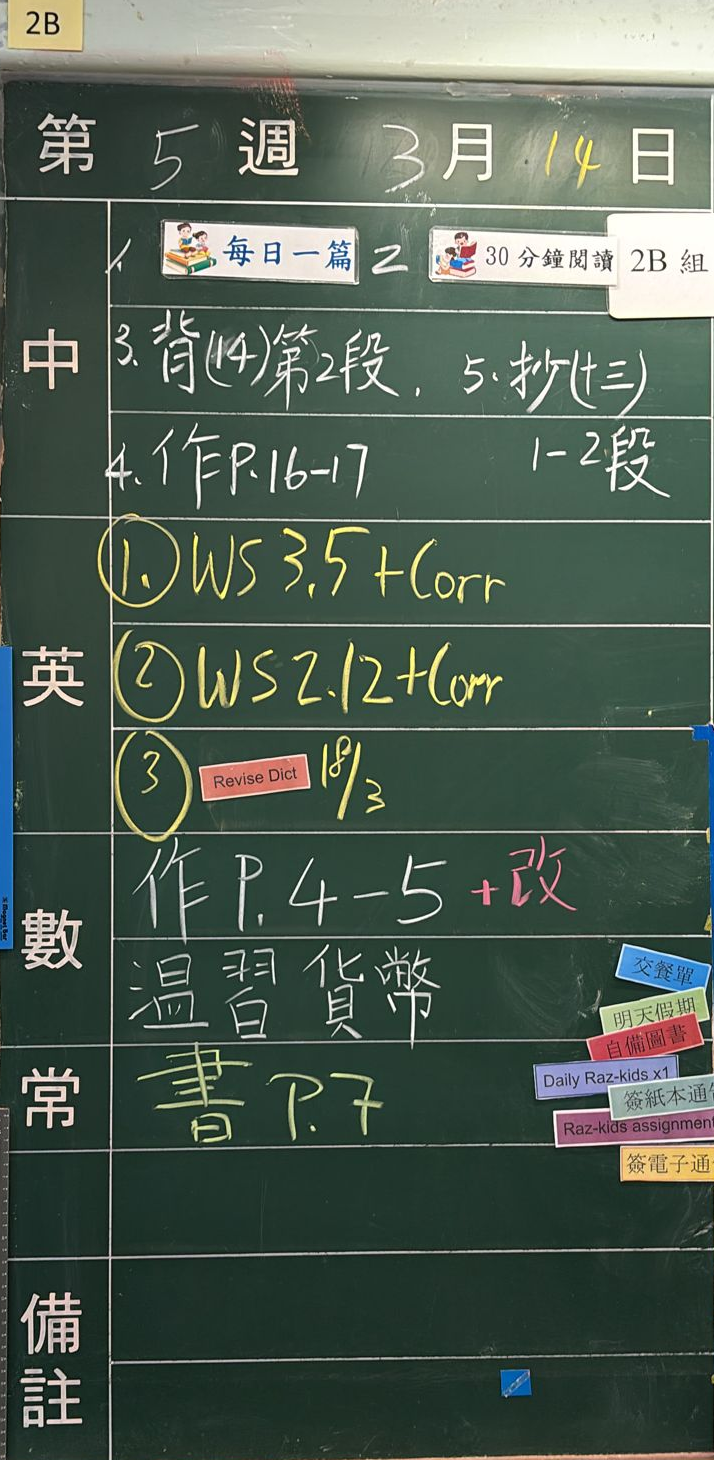 2B
第 5 週 3 月 14 日
中
1. 每日一篇 2 30分鐘閱讀 2B 組
3. 背(14)第2段. 5. 抄(十三)
4. 作P.16-17 1-2段
英
1. WS 3.5 + Corr
2 WS 2.12 + Corr
3 Revise Dict 18/3
數
作 P. 4-5 +改
温習貨幣
交餐單
明天假期
自備圖書
常
書 P.7
Daily Raz-kids x1
簽紙本通
Raz-kids assignment
簽電子通
備註